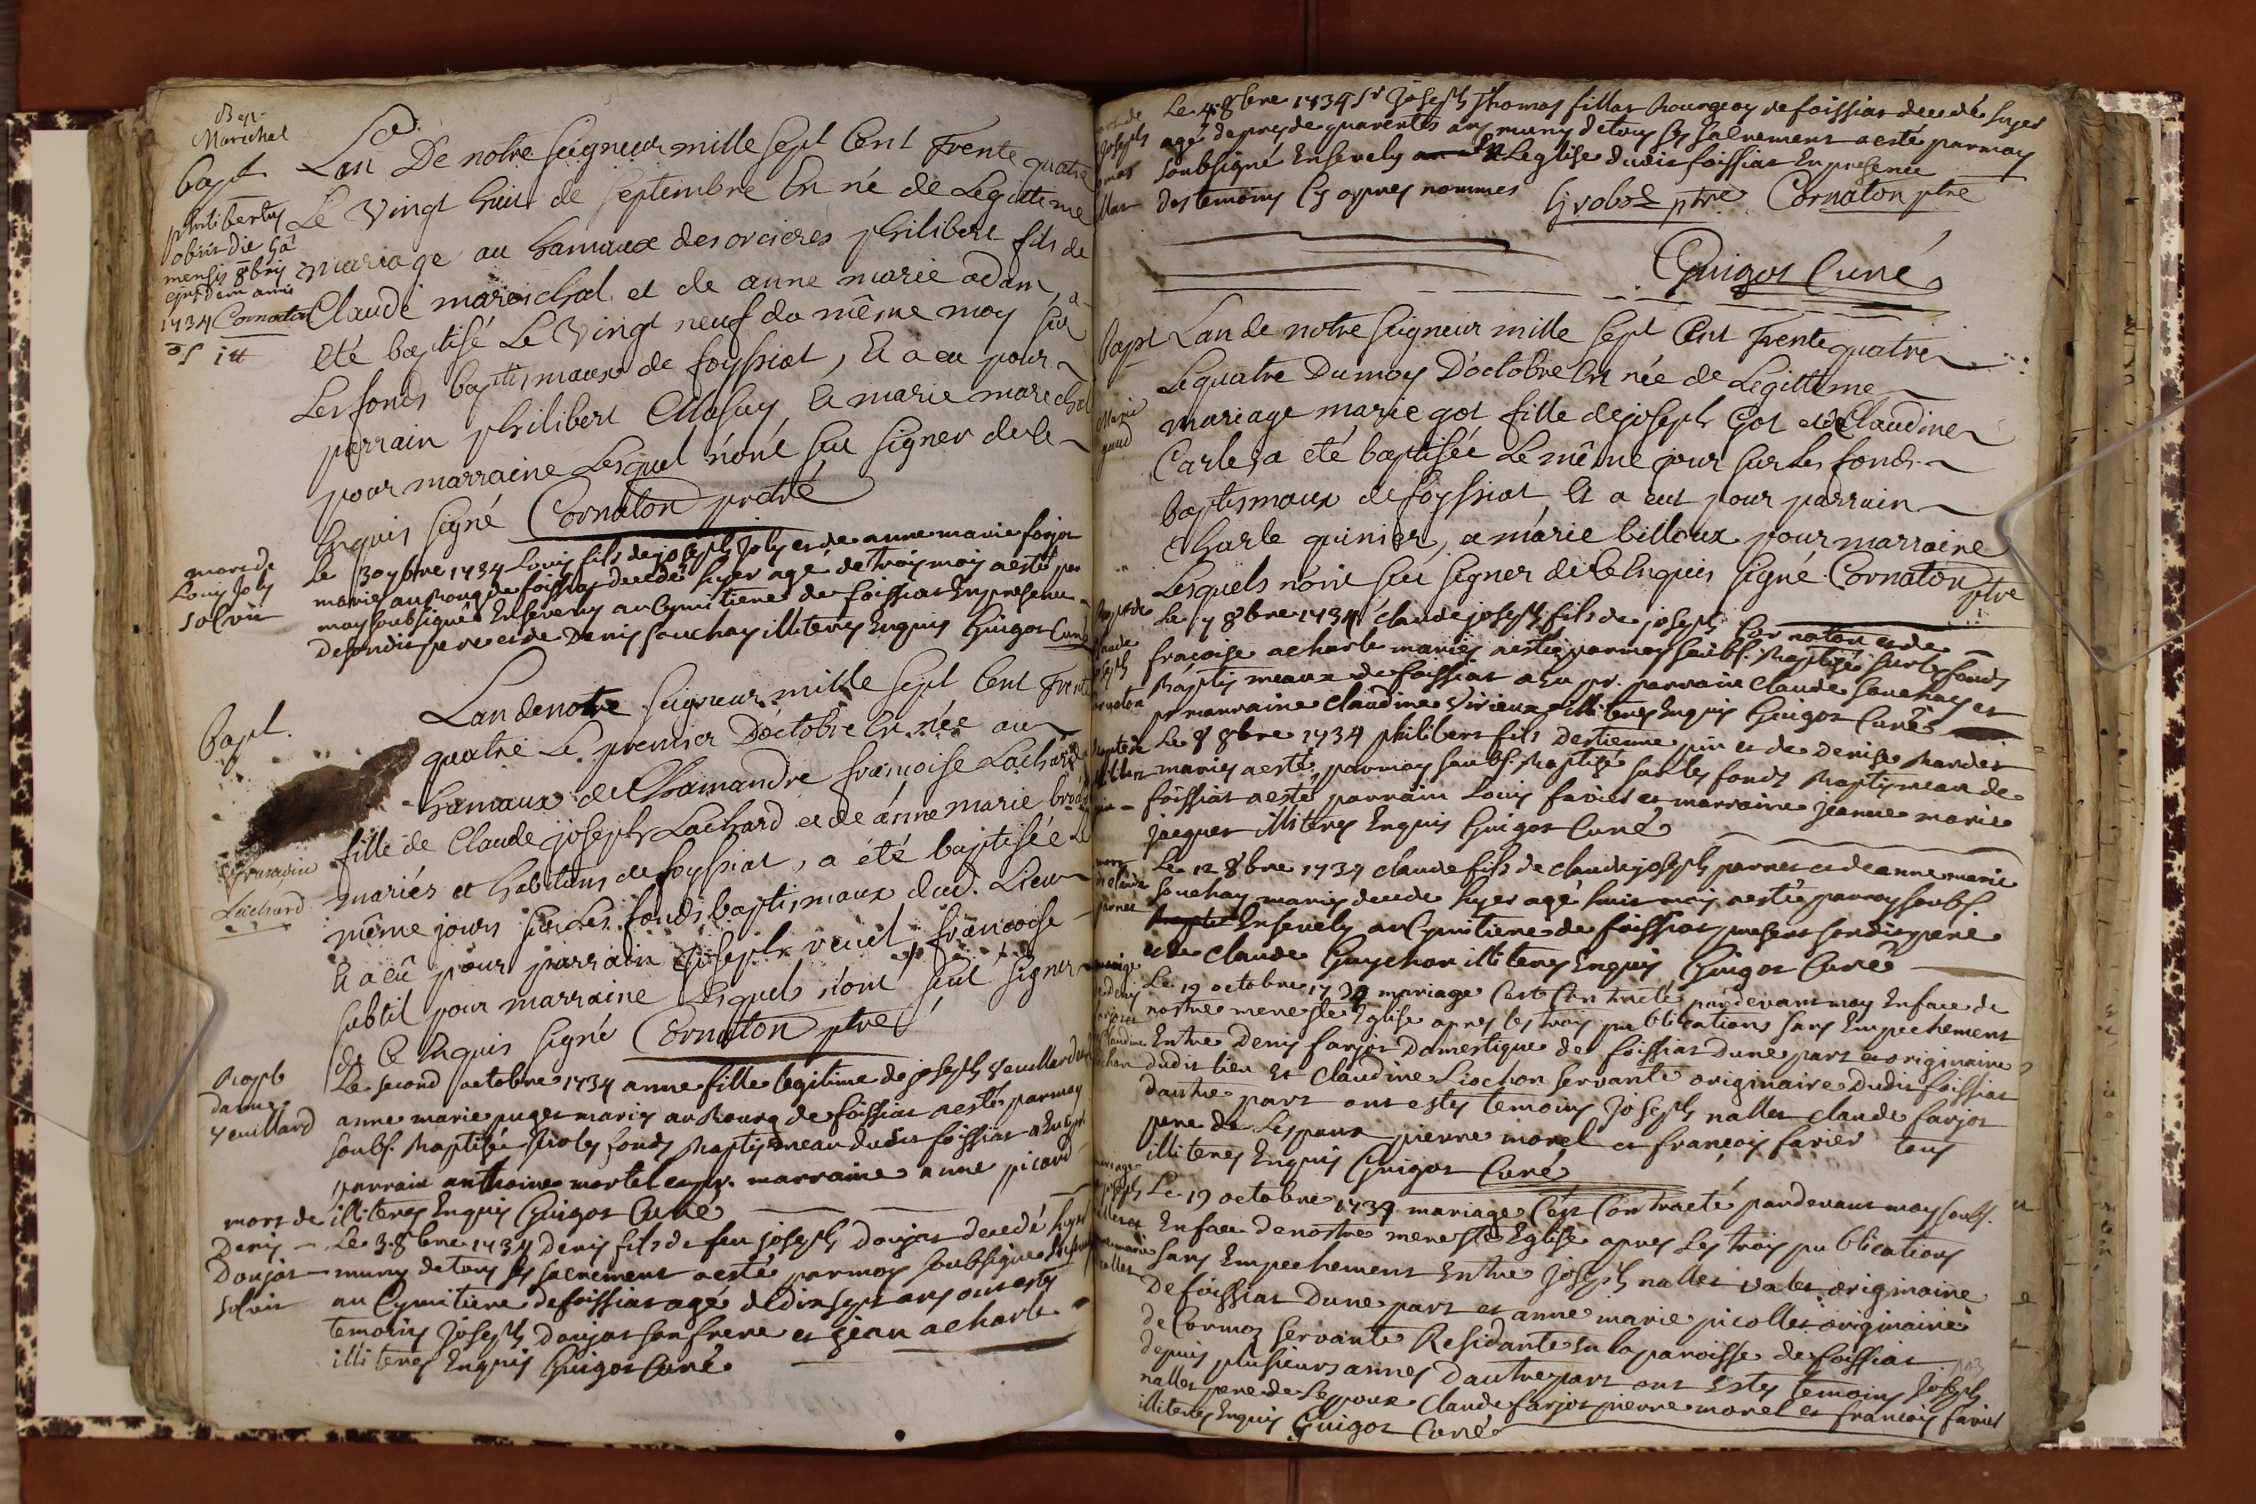 Bap.
Marechal
Bapt
philibertus
obiit die
mensis 8bris
ejusdem anni
1734 Cornaton
Lan De notre seigneur mille sept Cent Trente quatre
Le Vingt huit de septembre Est né de Legittime
mariage au hamaux des orcieres philibert fils de
Claude marechal et de anne marie adam, a
été baptisé Le Vingt neuf du même moy sur
Les fonds baptismaux de foyssiat, Et a eu pour
parrain philibert Et marie marechal
pour marraine Lesquel n'ont sçu signer de ce
Enquis signé Cornaton pretre
mort de
Louis Joly
solvit
Le 30 7bre 1734 Louis fils de joseph Joly et de anne marie forjot
mariés au Bourg de foissiat decedé hyer agé de trois mois a esté par
moy soubsigné Ensevely au Cymitiere de foissiat En presence
de sondit pere et de Denis souchay illiteres Enquis Guigot Curé
Bapt.
francoise
Lachard
Lan de notre seigneur mille sept Cent Trente
quatre Le premier D'octobre Est née au
hamaux de Chamandre françoise Lachard
fille de Claude joseph Lachard et de anne marie
mariés et habitans de foyssiat, a été baptisée Le
même jours sur Les fonds baptismaux dud. Lieu
Et a eû pour parrain joseph veuil francoise
subtil pour marraine Lesquels n'ont sçut signer
de Ce Enquis signé Cornaton ptre
Bapt
danne
veuillard
Le second octobre 1734 anne fille legitime de joseph veuillard et
anne marie puget mariés au Bourg de foissiat a esté par moy
soubs. Baptisée sur les fonds Baptismeau dudit foissiat a Eu pr
parrain anthoine mortel et pr. marraine anne picard
illiteres Enquis Guigot Curé
mort de
Denis
Doujat
solvit
Le 3. 8bre 1734 Denis fils de feu joseph Doujat decedé hyer
muny de tous ses sacrement a esté par moy soubsigné
au Cymitiere de foissiat agé de dix sept ans ont estés
temoins Joseph Doujat son frere et jean acharle
illiteres Enquis Guigot Curé
Le 4. 8bre 1734 Sr Joseph Thomas fillat Bourgeois de foissiat decedé hyer
agé de pres de quarentes ans muny de tous ses sacrement a esté par moy
soubsigné Ensevely En Leglise dudit foissiat En presence
des temoins Cy apres nommes Groboz ptre Cornaton ptre
Guigot Curé
Bapt
Marie
Lan de notre seigneur mille sept Cent Trente quatre
Le quatre Du moy D'octobre Est née de Legittime
mariage marie got fille de joseph Got et de Claudine
Carle a été baptisée Le même jour sur Les fonds
baptismaux de foyssiat, Et a eut pour parrain
Charle quinier, et marie billoux pour marraine
Lesquels n'ont sçu signer de Ce Enquis signé Cornaton ptre
Le 7 8bre 1734 claude joseph fils de joseph Cornaton et de
fracoise acharle mariés a esté par moy soubs. Baptizé sur les fonds
Baptismeaux de foissiat a Eu pr. parrain Claude souchay et
pr marraine Claudine Virieux illiteres Enquis Guigot Curé
Le 8 8bre 1734 philibert fils Destienne pin et de Denise Mandet
mariés a esté par moy soubs. Baptizé sur les fonds Baptismeau de
foissiat a estés parrain Louis favier et marraine Jeanne marie
jacquet illiteres Enquis Guigot Curé
Le 12 8bre 1734 claude fils de claude joseph pernet et de anne marie
souchay mariés decede hyer agé huit mois a esté par moy soubs.
Ensevely au Cymitiere de foissiat present sondit pere
et de Claude Guychon illiteres Enquis Guigot Curé
Le 19 octobre 1734 mariage Cest Contracté pardevant moy En face de
nostre mere ste Eglise apres les trois publications sans Empechement
Entre Denis farjot Domestique de foissiat dune part et originaire
dudit lieu Et Claudine Liochon servante originaire Dudit foissiat
dautre part ont estes temoins Joseph nallet claude farjot
pere de Lespoux pierre morel et françois favier tous
illiteres Enquis Guigot Curé
Le 19 octobre 1734 mariage C'est Contracté pardevant moy soubs.
En face de nostre mere ste Eglise apres les trois publications
sans Empechement Entre Joseph nallet valet originaire
De foissiat Dune part et anne marie picollet originaire
de Cormoz servante Residante sa la paroisse de foissiat
depuis plusieurs annes Dautre part ont Estes temoins Joseph
nallet pere de Lespoux Claude farjot pierre morel et francois favier
illiteres Enquis Guigot Curé